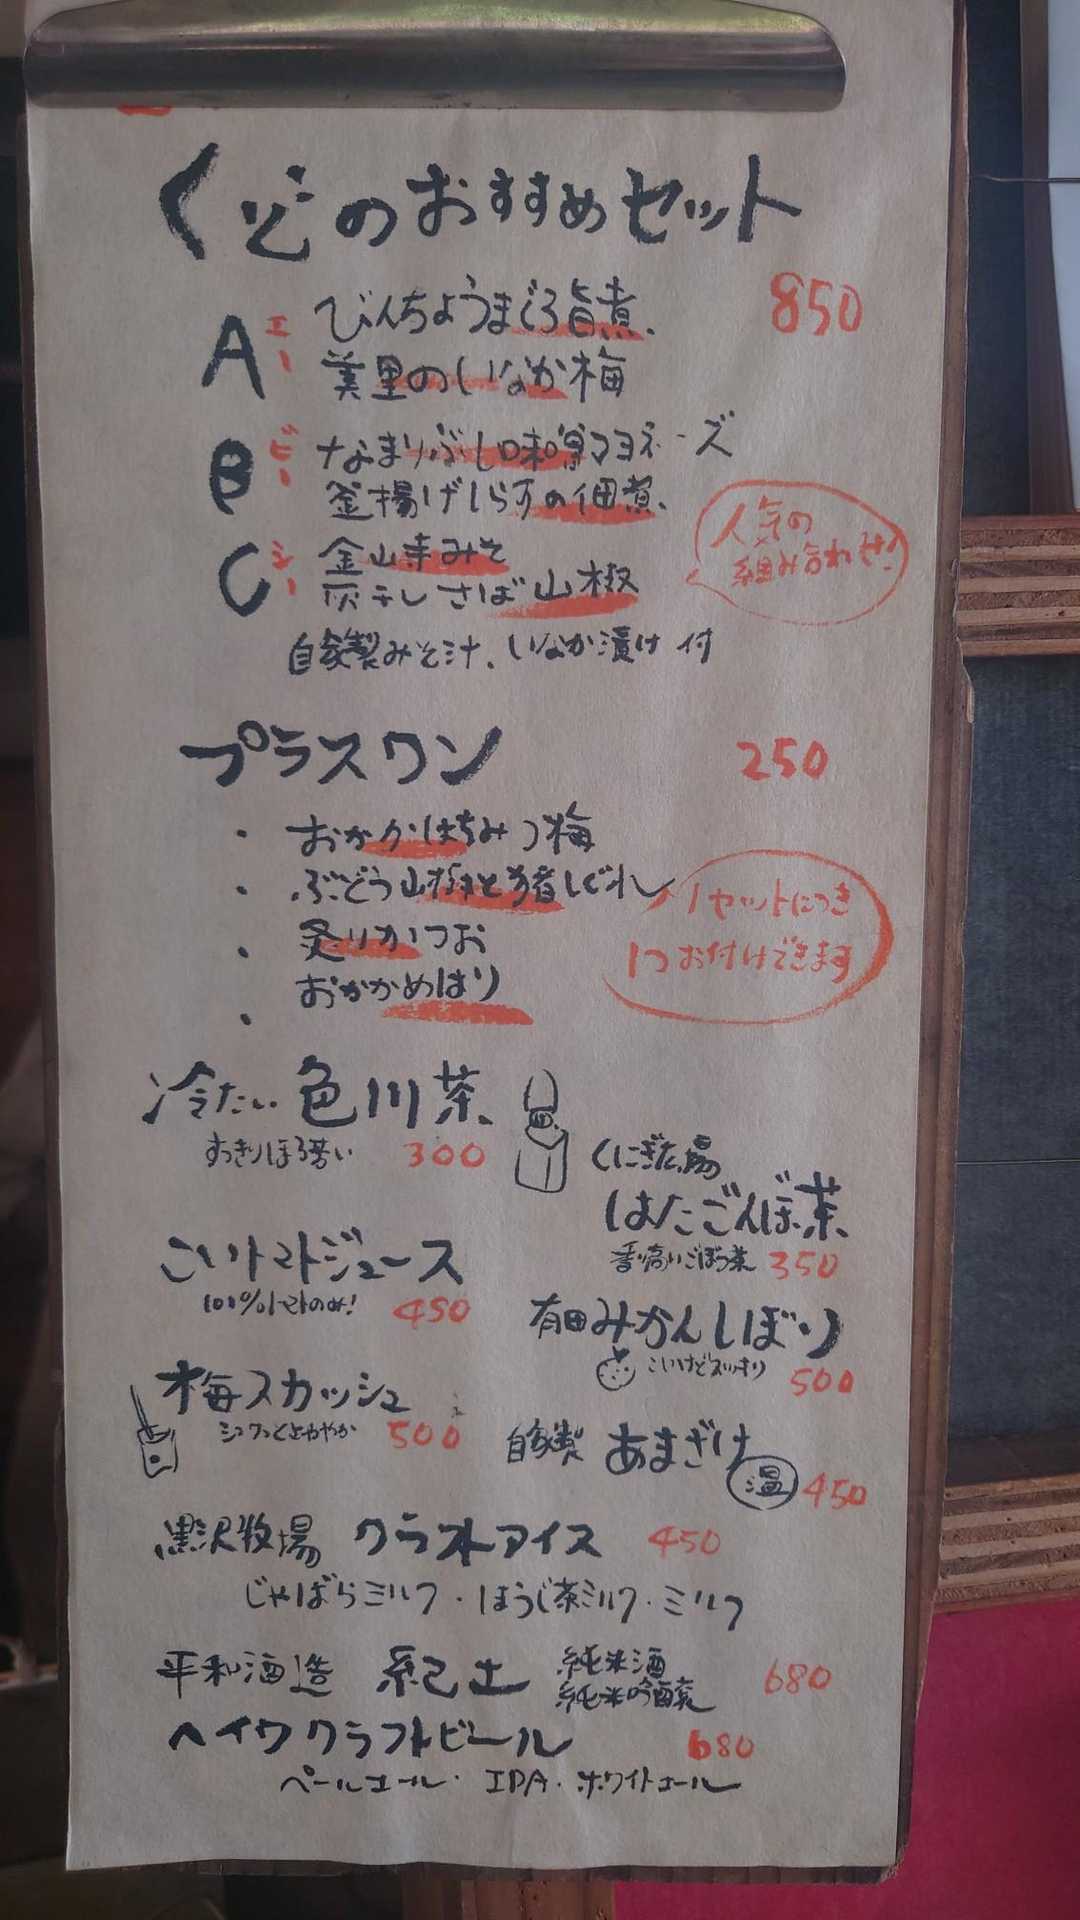 くどのおすすめセット
850
A エー
びんちょうまぐろ旨煮、
美里のいなか梅
B ビー
なまりぶし味噌マヨネーズ
釜揚げしらすの佃煮、
人気の
組み合わせ!
C シー
金山寺みそ
灰干しさば山椒
自家製みそ汁、いなか漬け付
プラスワン 250
・おかかはちみつ梅
・ぶどう山椒と猪しぐれ
・炙りかつお
・おかかめはり
1セットにつき
1つお付けできます
冷たい色川茶
すっきりほろ苦い 300
くにぎ広場
はたごんぼ茶
香り高いごぼう茶 350
こいトマトジュース
100%トマトのみ! 450
有田みかんしぼり
こいけどスッキリ 500
梅スカッシュ
シュワっとさわやか 500
自家製 あまざけ
温 450
黒沢牧場 クラフトアイス 450
じゃばらミルク・ほうじ茶ミルク・ミルク
平和酒造 紀土 純米酒
純米吟醸 680
ヘイワクラフトビール 680
ペールエール・IPA・ホワイトエール